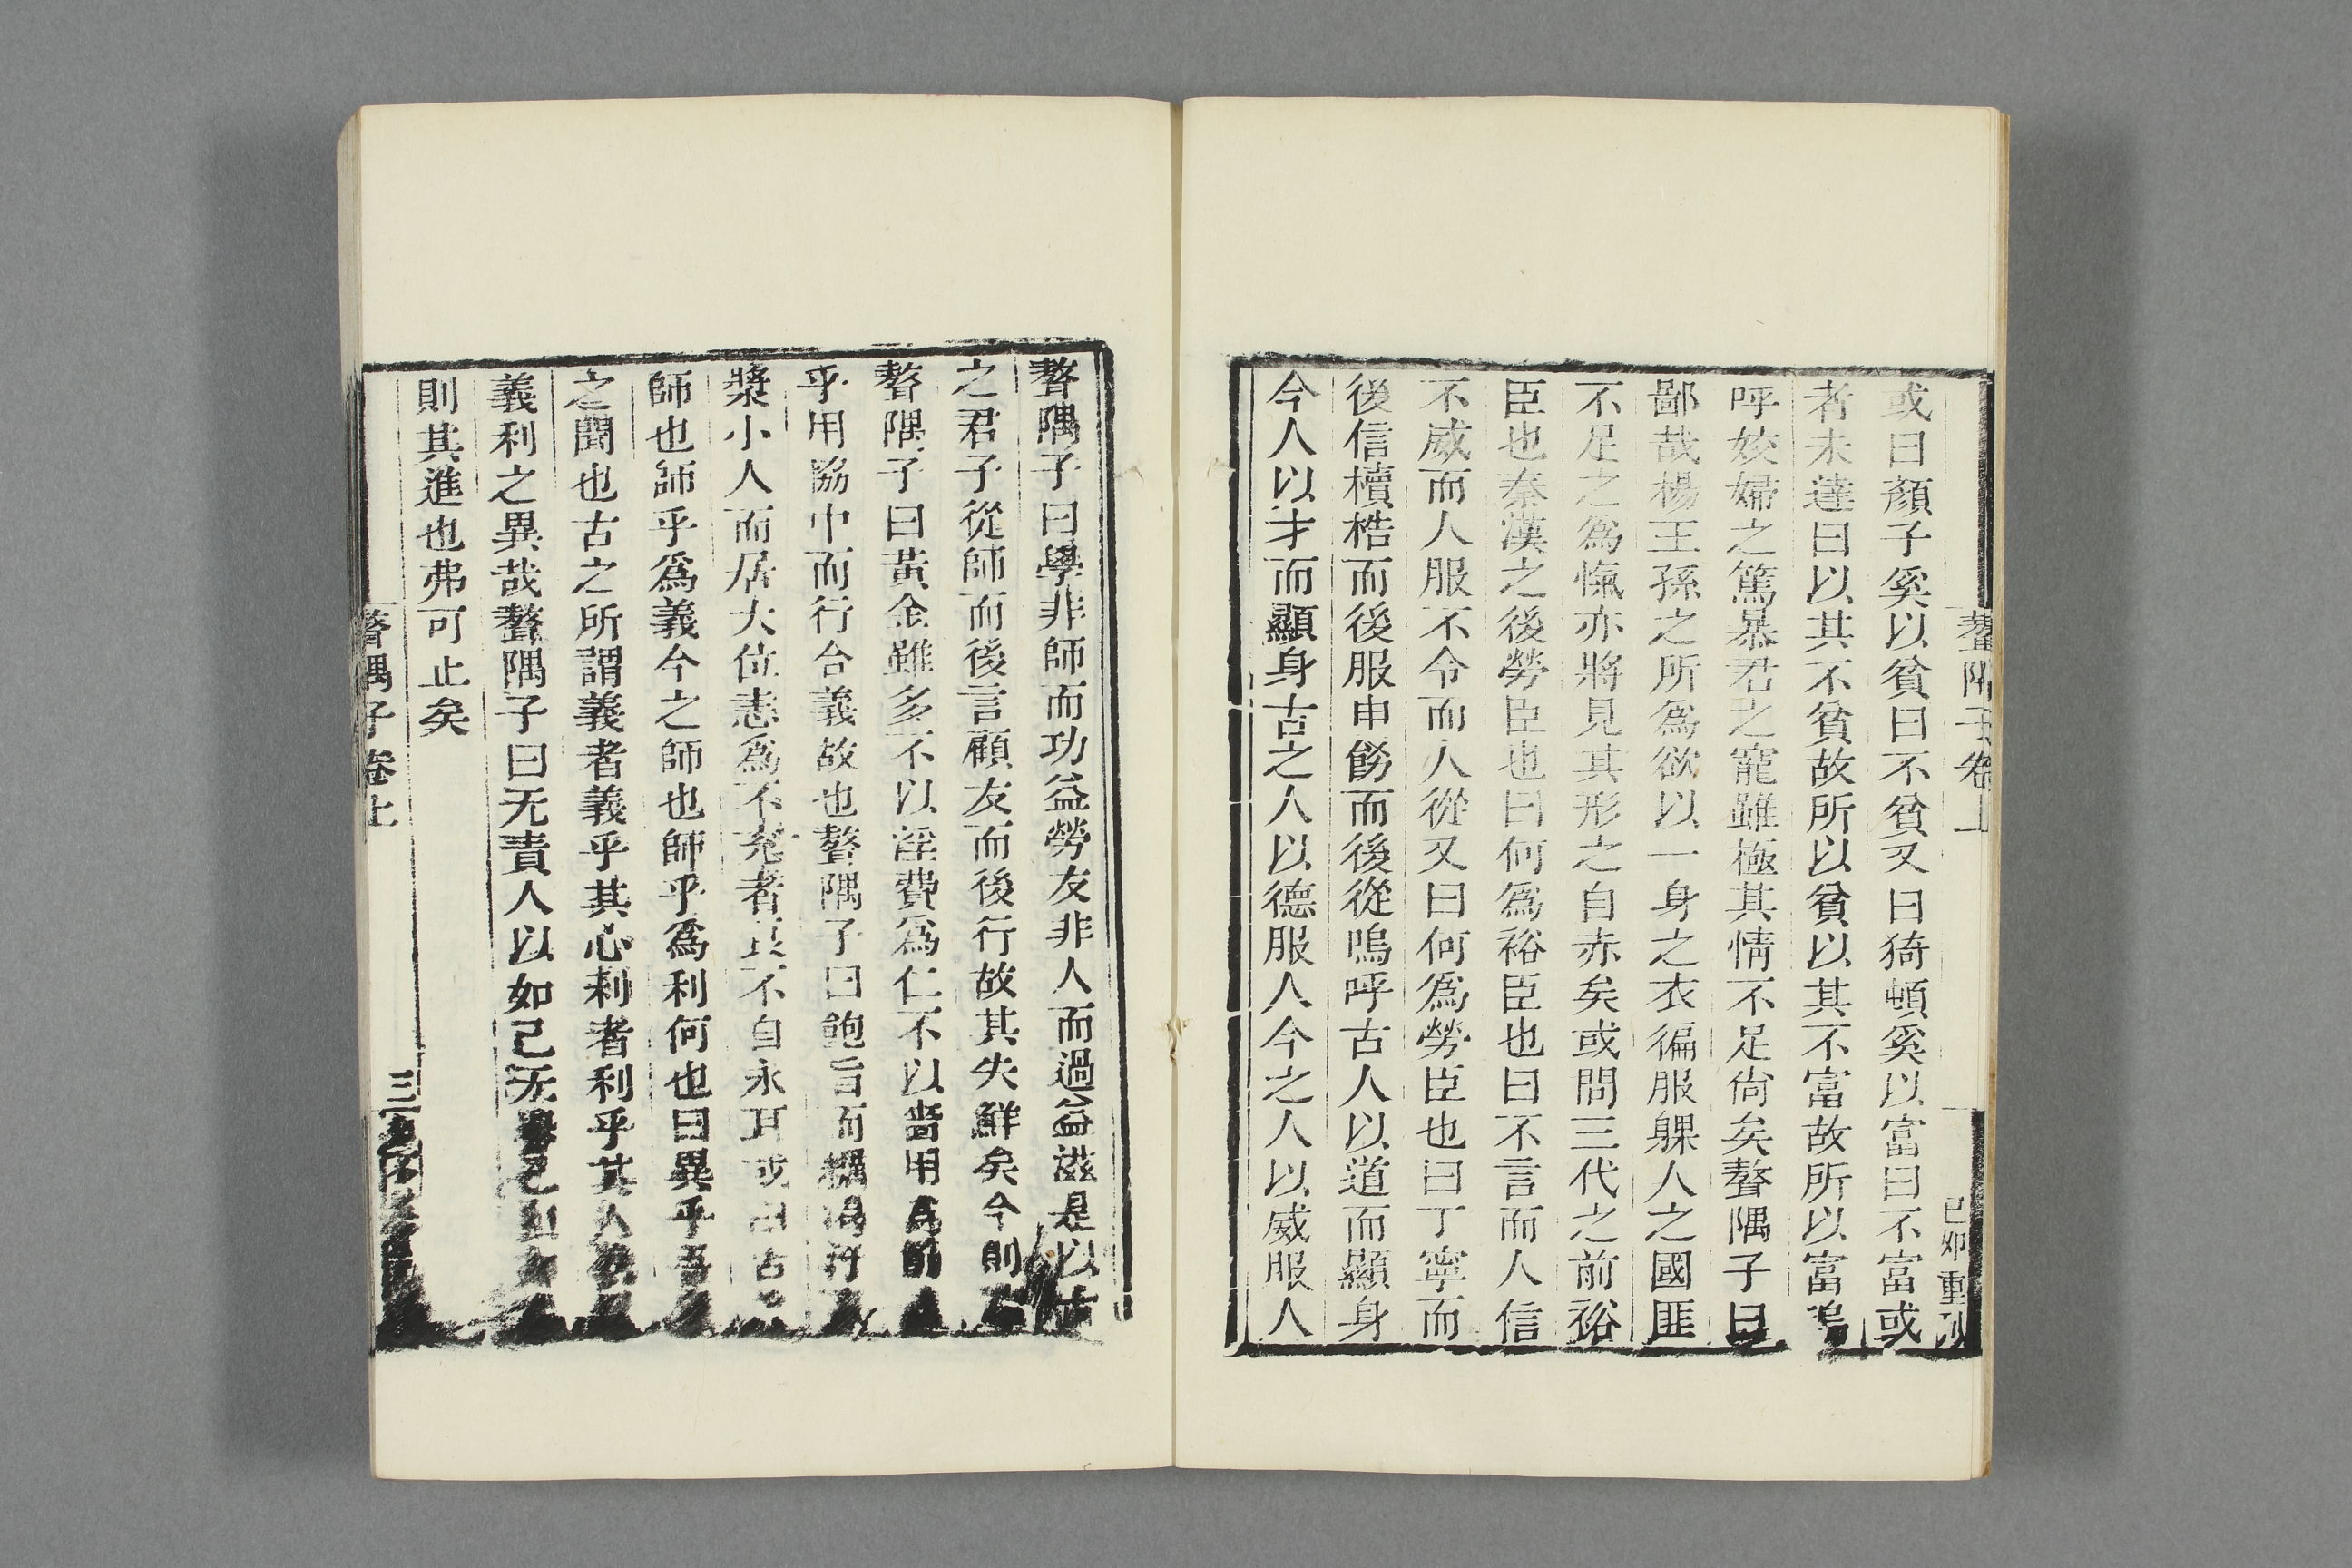 聱隅子卷上
己卯重刊
或曰顏子奚以貧曰不貧又曰猗頓奚以富曰不富或
者未達曰以其不貧故所以貧以其不富故所以富嗚
呼姣婦之篤暴君之寵雖極其情不足尙矣聱隅子曰
鄙哉楊王孫之所爲欲以一身之衣徧服躶人之國匪
不足之爲愾亦將見其形之自赤矣或問三代之前裕
臣也秦漢之後勞臣也曰何爲裕臣也曰不言而人信
不威而人服不令而人從又曰何爲勞臣也曰丁寧而
後信檟梏而後服申飭而後從嗚呼古人以道而顯身
今人以才而顯身古之人以德服人今之人以威服人
聱隅子曰學非師而功益勞友非人而過益滋是以古
之君子從師而後言顧友而後行故其失鮮矣今則
聱隅子曰黃金雖多不以淫費爲仁不以嗇用爲
乎用協中而行合義故也聱隅子曰飽旨而
漿小人而居大位恚爲不充者良不自永耳或曰古
師也師乎爲義今之師也師乎爲利何也曰異乎吾
之聞也古之所謂義者義乎其心利者利乎其人
義利之異哉聱隅子曰无責人以如己无
則其進也弗可止矣
聱隅子卷上
三